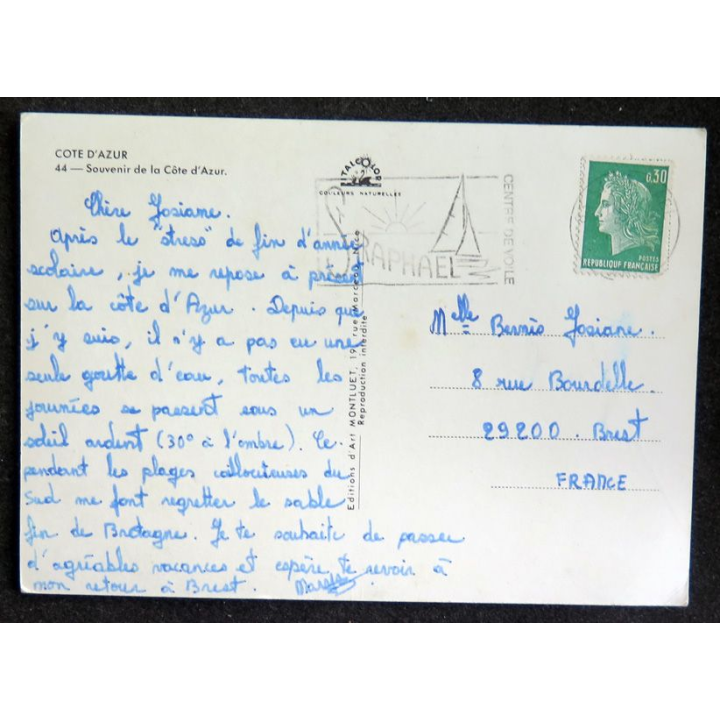 COTE D'AZUR
44 — Souvenir de la Côte d'Azur.
Chère Josiane.
Après le "stress" de fin d'année
scolaire, je me repose à présent
sur la côte d'Azur. Depuis que
j'y suis, il n'y a pas eu une
seule goutte d'eau, toutes les
journées se passent sous un
soleil ardent (30° à l'ombre). Ce-
pendant les plages caillouteuses du
Sud me font regretter le sable
fin de Bretagne. Je te souhaite de passer
d'agréables vacances et espère te revoir à
mon retour à Brest.
ITALCOLOR
COULEURS NATURELLES
RAPHAEL
CENTRE DE VOILE
Editions d'Art MONTLUET, 19, rue Marceau, Nice
Reproduction interdite
0,30
POSTES
REPUBLIQUE FRANÇAISE
Melle Bernis Josiane.
8 rue Bourdelle.
29200. Brest
FRANCE